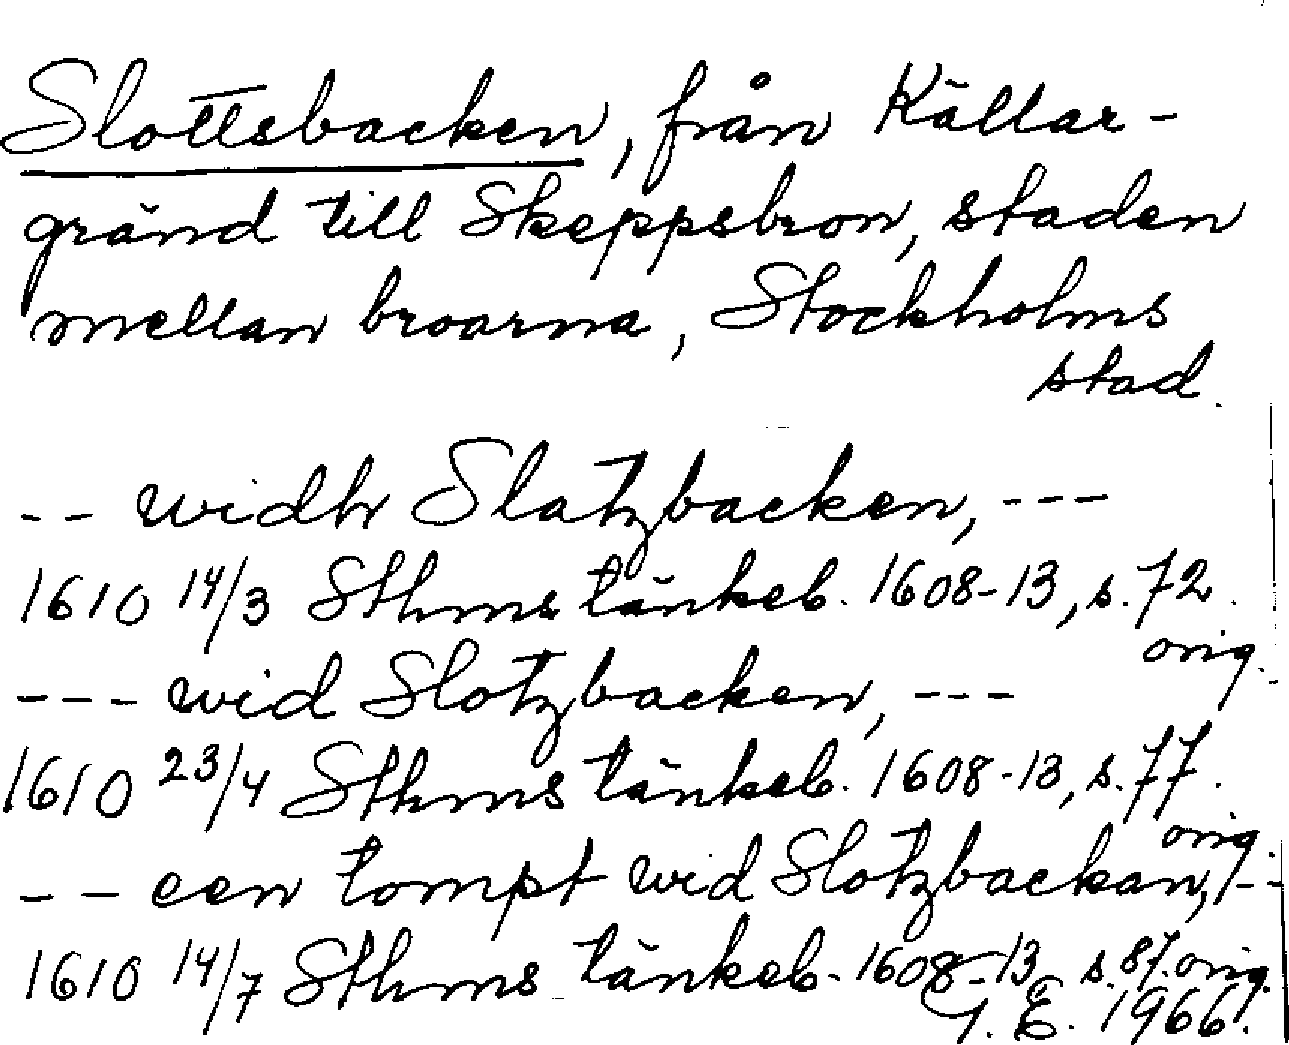 Slottsbacken, från Källar-
gränd till Skeppsbron, staden
mellan broarna, Stockholms
stad.
-- widh Slatzbacken, ---
1610 14/3 Sthms tänkeb. 1608-13, s. 72.
orig.
--- wid Slotzbacken, ---
1610 23/4 Sthms tänkeb. 1608-13, s. 77.
orig.
-- een tompt wid Slotzbackan, --
1610 14/7 Sthms tänkeb. 1608-13 s. 87. orig.
G. E. 1966.